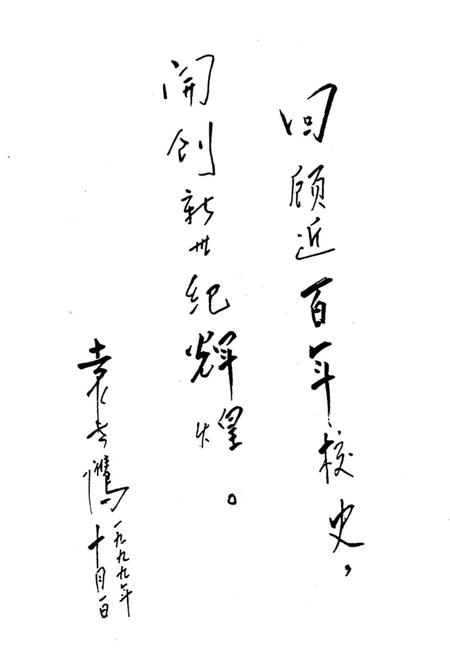 回顾近百年校史，
開创新世纪輝煌。
袁世鹰
一九九九年
十月一日